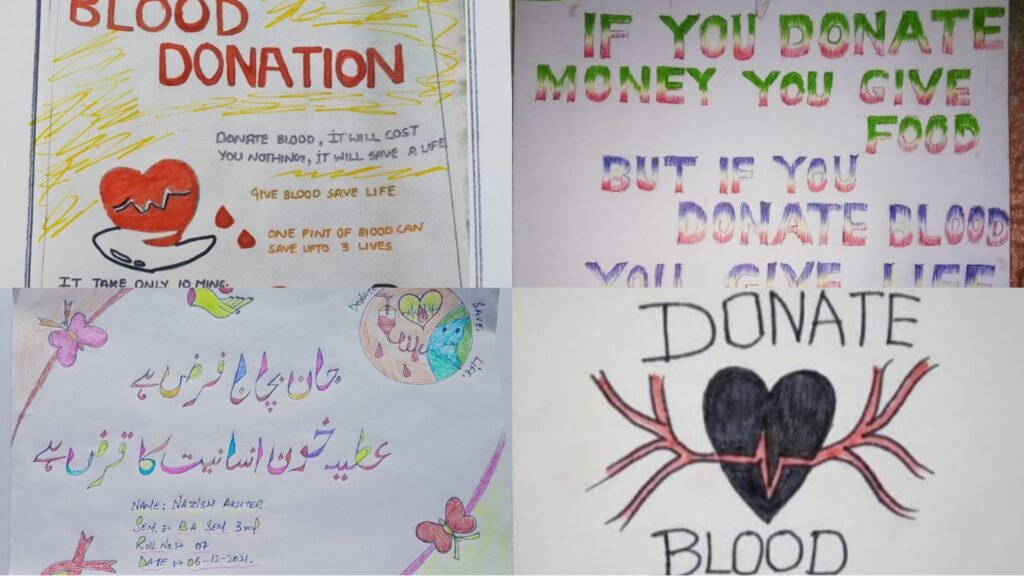 BLOOD
DONATION
DONATE BLOOD, IT WILL COST
YOU NOTHING, IT WILL SAVE A LIFE
GIVE BLOOD SAVE LIFE
ONE PINT OF BLOOD CAN
SAVE UPTO 3 LIVES
IT TAKE ONLY 10 MINS.
IF YOU DONATE
MONEY YOU GIVE
FOOD
BUT IF YOU
DONATE BLOOD
YOU GIVE LIFE
DONATE
Life
SAVE
LIFE
جان بچانا فرض ہے
عطیہ خون انسانیت کا قرض ہے
NAME: NAZISH AKHTER
SEM :- BA SEM 3rd
ROLL NO :- 07
DATE :- 06-12-2021.
DONATE
BLOOD